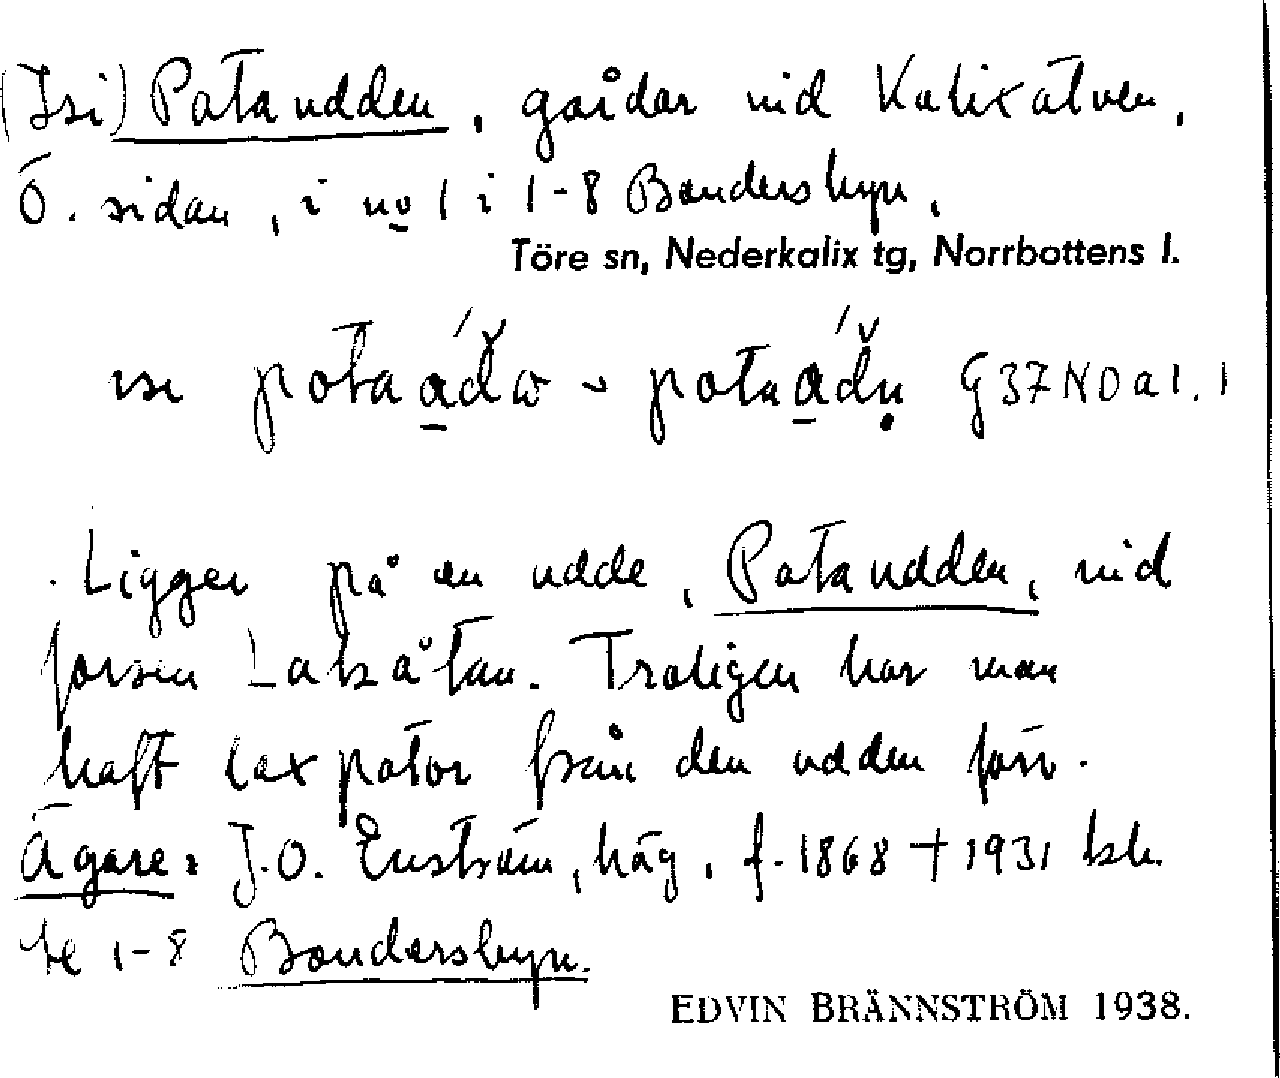 (Isi) Pataudden, gårdar vid Kalixälven,
Ö. sidan, i no 1 i 1-8 Bondersbyn.
Töre sn, Nederkalix tg, Norrbottens l.
ise
G37NDa1.1
Ligger på en udde, Pataudden, vid
forsen Troligen har man
haft laxpator från den udden förr.
Ägare: J.O. Enström, häg, f. 1868 † 1931
1-8 Bondersbyn.
EDVIN BRÄNNSTRÖM 1938.